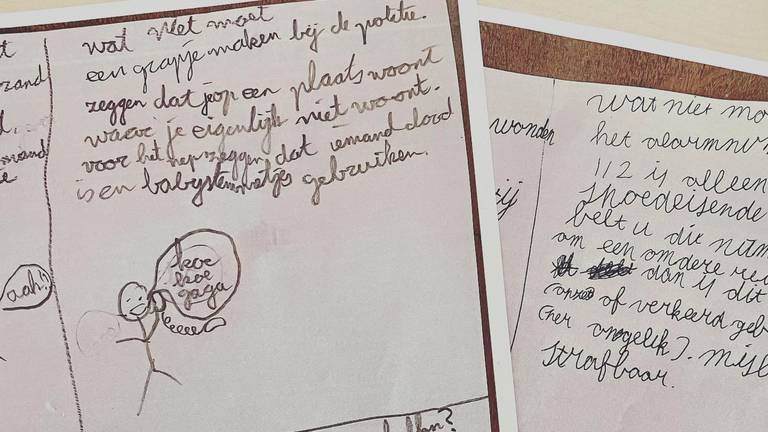 t
zand
d.
emand
e
aah!)
wat niet moet
een grapje maken bij de politie.
zeggen dat je op een plaats woont
waar je eigenlijk niet woont.
voor het nep zeggen dat iemand dood
is en babystemmetjes gebruiken.
koe
koe
gaga
eeeee
wonden
zij
wat niet mo
het alarmnum
112 is alleen
spoedeisende
belt u dit num
om een andere re
dan is dit
of verkeerd geb
strafbaar.